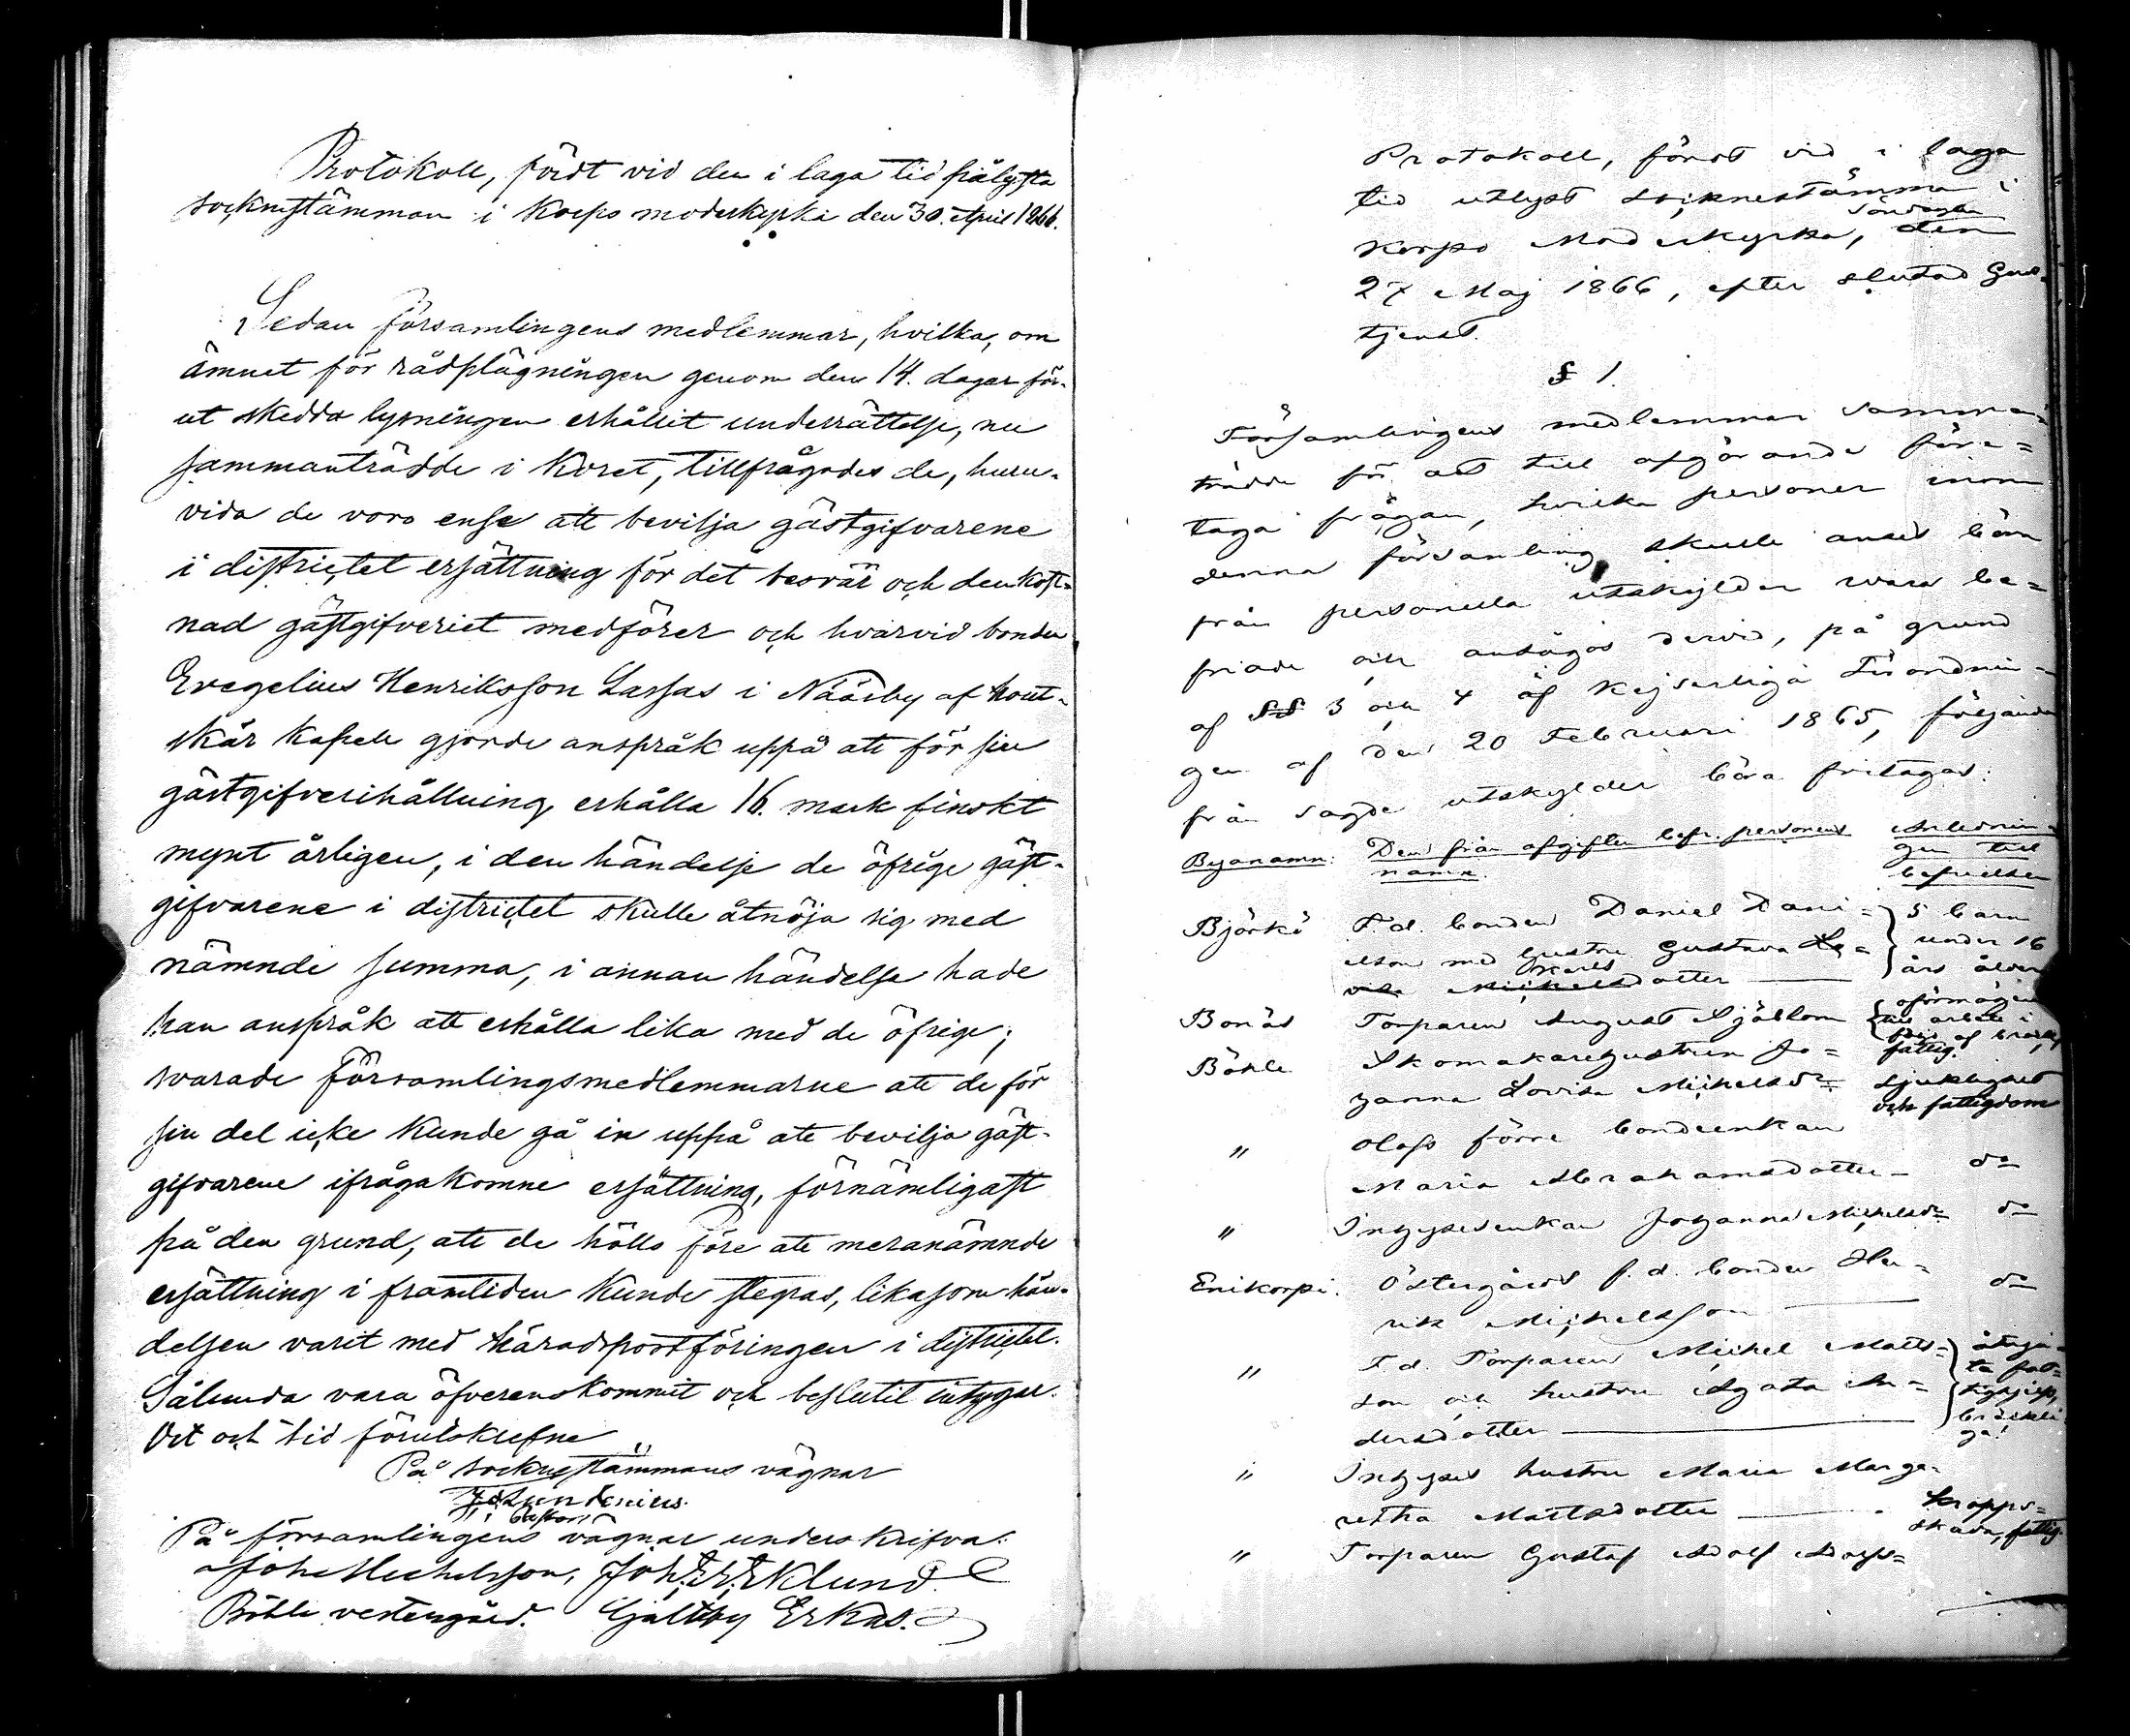 Protokoll, fördt vid den i laga tid pålysta
sockenstämman i Korpo moderkyrka den 30. April 1866.
Sedan församlingens medlemmar, hvilka, om
ämnet för rådplägningen genom den 14. dagar för-
ut skedda lysningen erhållit underrättelse, nu
sammanträdde i Koret, tillfrågades de, huru-
vida de voro ense att bevilja gästgifvarene
i districtet ersättning för det besvär och den kost-
nad gästgifveriet medförer och hvarvid bonden
Evegelius Henriksson Lassas i Näsby af Hout-
skär Kapell gjorde anspråk uppå att för sin
gästgifverihållning erhålla 16. mark finskt
mynt årligen, i den händelse de öfrige gäst-
gifvarene i districtet skulle åtnöja sig med
nämnde summa, i annan händelse hade
han anspråk att erhålla lika med de öfrige;
svarade församlingsmedlemmarne att de för
sin del icke kunde gå in uppå att bevilja gäst-
gifvarene ifrågakomne ersättning, förnämligast
på den grund, att de hölls före att meranämnde
ersättning i framtiden kunde stegras, likasom hän-
delsen varit med häradspostföringen i districtet.
Sålunda vara öfverenskommit och beslutit intygar.
Ort och tid förutskrefne
På sockenstämmans vägnar
Lundenius.
Pastor
På församlingens vägnar underskrifva:
Joh. Mechelsson, Joh: E: Eklund.
Böhle vestergård. Gjaltby Erkas.
Protokoll, fördt vid i laga
tid utlyst socknestämma i
Söndagen
Korpo Moderkyrka, den
27 Maj 1866, efter slutad Guds-
tjenst.
§ 1.
Församlingens medlemmar samman-
trädde för att till afgörande före=
taga frågan, hvilka personer inom
denna församling skulle anses böra
från personella utskylder vara be=
friade och ansågos dervid, på grund
af §§ 3 och 4 af Kejserliga Förordnin-
gen af den 20 Februari 1865, följande
från sagde utskylder böra fritagas:
Byanamn: Den från afgiften befr. personens Anlednin-
namn. gen till
befrielsen
Björkö F.d. bonden Daniel Dani= 5 barn
elson med hustru Gustava Lo= under 16
Karls
visa Michelsdotter års ålder
Bonäs Torparen August Sjöblom oförmögen
till arbete i
följd af bråck,
Böhle Skomakarehustrun Jo= fattig.
hanna Lovisa Michelsdr sjuklighet
och fattigdom
" Olofs förre bondeenkan
Maria Abrahamsdotter - do
" Inhysesenkan Johanna Michelsdr do
Enikorpi. Östergårds f.d. bonden Hen=
rik Michelsson do
" F.d. Torparen Michel Matts= åtnju-
son och hustru Agata An= ta fat=
tighjelp,
dersdotter bräckli
ga!
" Inhyses hustru Maria Marga-
retha Mattsdotter Kropps=
skada, fattig.
" Torparen Gustaf Adolf Adolfs=